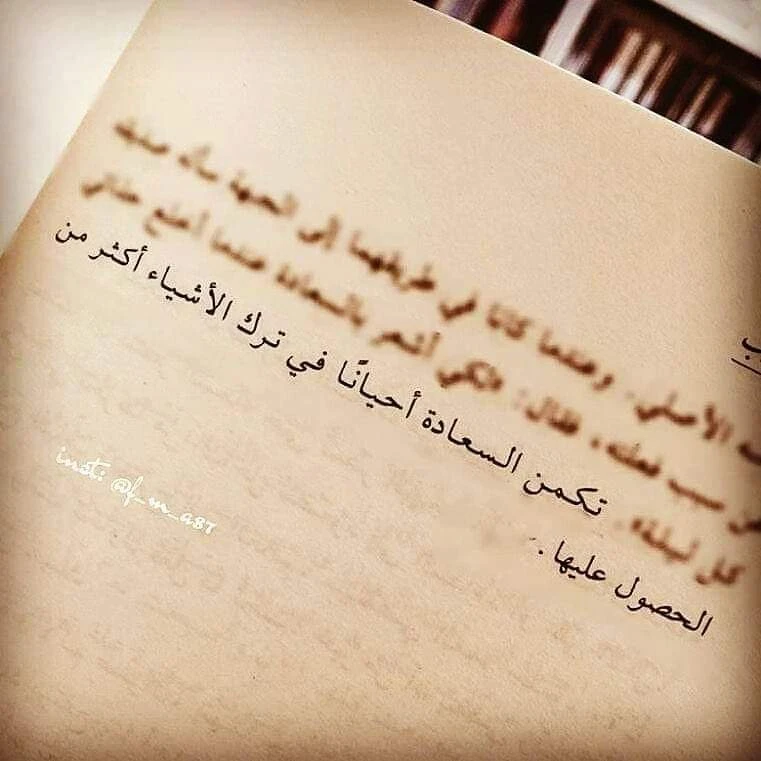 ب
الأصلي. وعندما كانا في طريقهما إلى الجبهة سأله صديقه
عن سبب فعلته، فقال: «لكي أشعر بالسعادة عندما أخلع حذائي
كل ليلة». تكمن السعادة أحيانًا في ترك الأشياء أكثر من
الحصول عليها.
inst: @f_m_a87